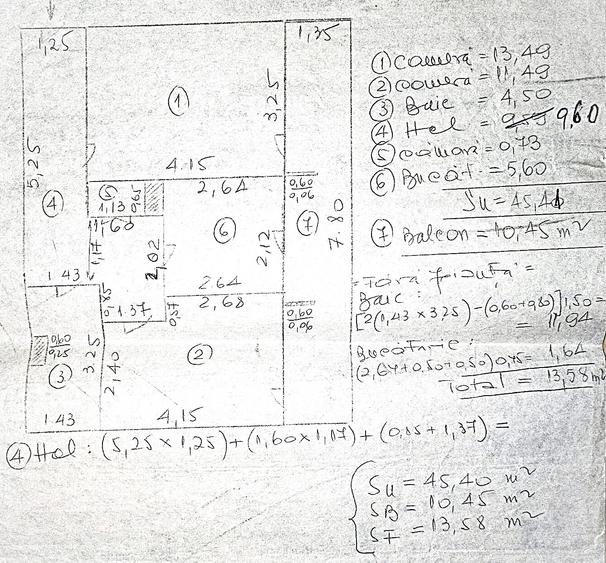 1,25
1,35
① Cameră = 13,49
② camera = 11,49
③ Baie = 4,50
④ Hol = 9,60
⑤ cămară = 0,73
⑥ Bucăt. = 5,60
Su = 45,41
⑦ Balcon = 10,45 m²
①
3,25
5,25
④
4.15
⑤
1,13
0,65
2,64
0,60
0,06
⑥
⑦
7.80
1,60
1,17
2,02
2,12
1.43
264
2,68
1.37
0,57
0,60
0,06
0,60
0,25
③
3.25
2,40
②
1.43
4,15
= Fără faianță =
Baie:
[2(1,43 x 3,25) - (0,60+0,80)] 1,50 =
= 11,94
Bucătărie:
(2,64+0,50+0,50) 0,45 = 1,64
Total = 13,58 m²
④ Hol : (5,25 x 1,25) + (1,60 x 1,17) + (0,85 + 1,37) =
Su = 45,40 m²
SB = 10,45 m²
SF = 13,58 m²